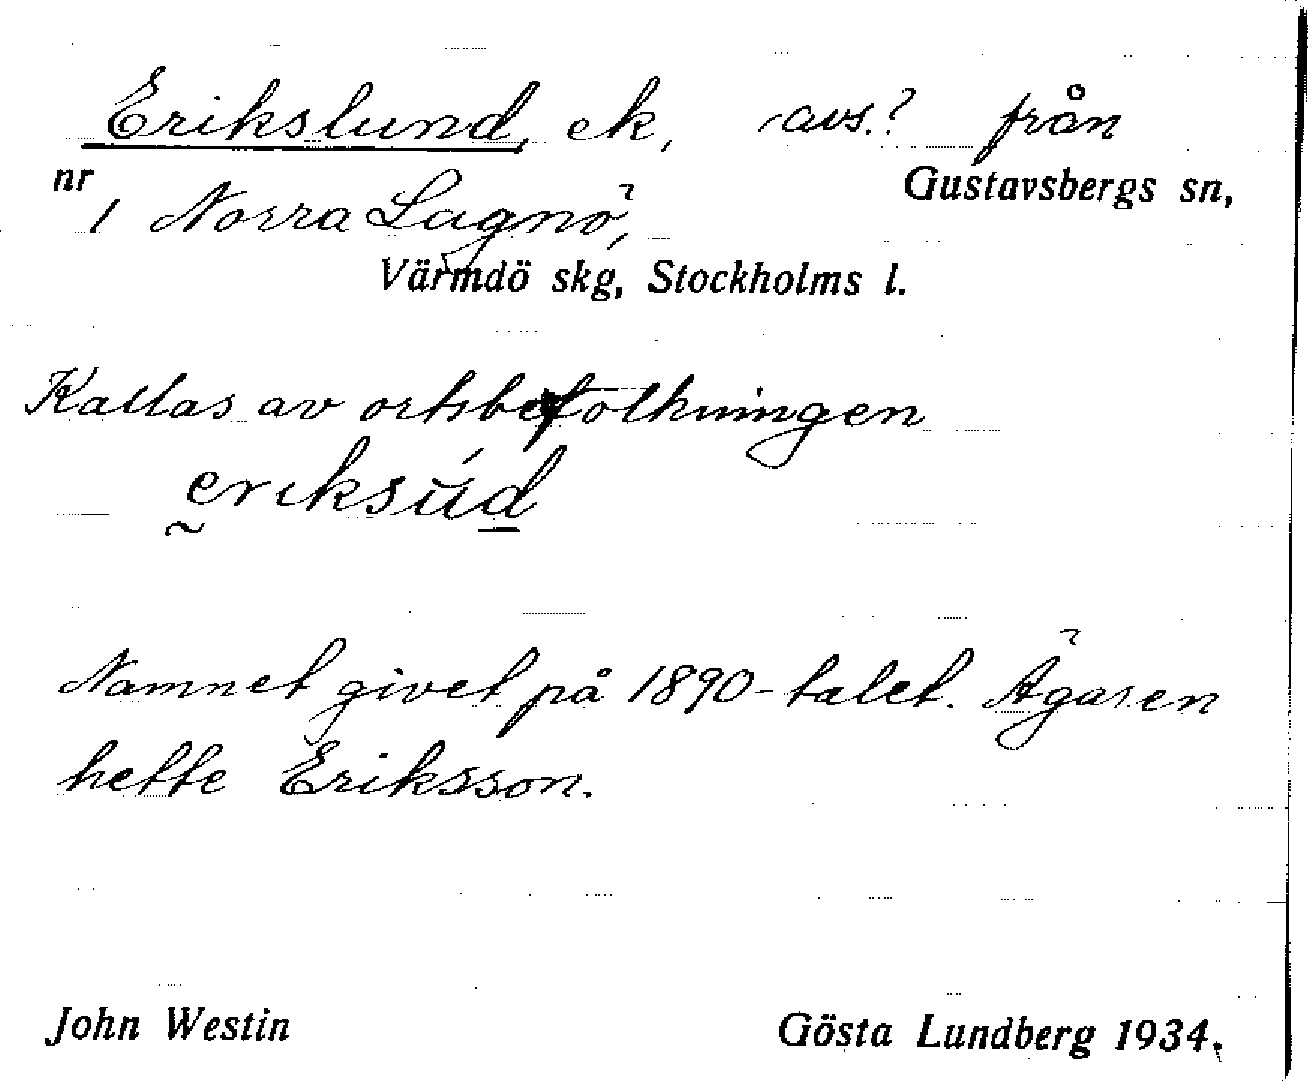 Erikslund, ek, avs.? från
nr 1 Norra Lagnö, Gustavsbergs sn,
Värmdö skg, Stockholms l.
Kallas av ortsbefolkningen
Namnet givet på 1890-talet. Ägaren
hette Eriksson.
John Westin Gösta Lundberg 1934.